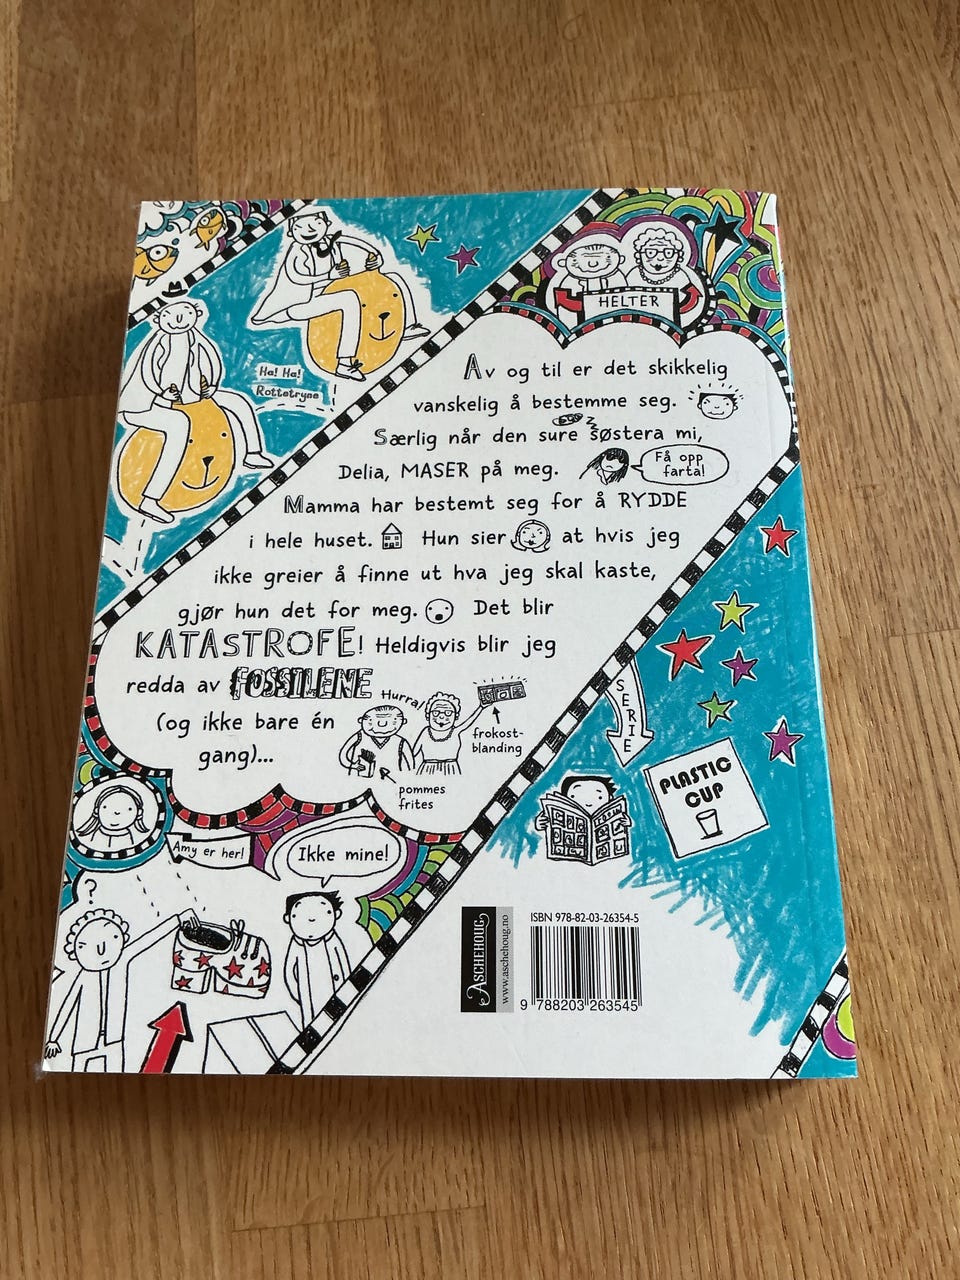 HELTER
Ha! Ha!
Rottetryne
Av og til er det skikkelig
vanskelig å bestemme seg.
Særlig når den sure søstera mi,
Delia, MASER på meg.
Få opp
farta!
Mamma har bestemt seg for å RYDDE
i hele huset. Hun sier at hvis jeg
ikke greier å finne ut hva jeg skal kaste,
gjør hun det for meg. Det blir
KATASTROFE! Heldigvis blir jeg
redda av FOSSILENE
(og ikke bare én
gang)...
Hurra!
frokost-
blanding
pommes
frites
SERIE
PLASTIC
CUP
Amy er her!
Ikke mine!
?
ASCHEHOUG
www.aschehoug.no
ISBN 978-82-03-26354-5
9 788203 263545